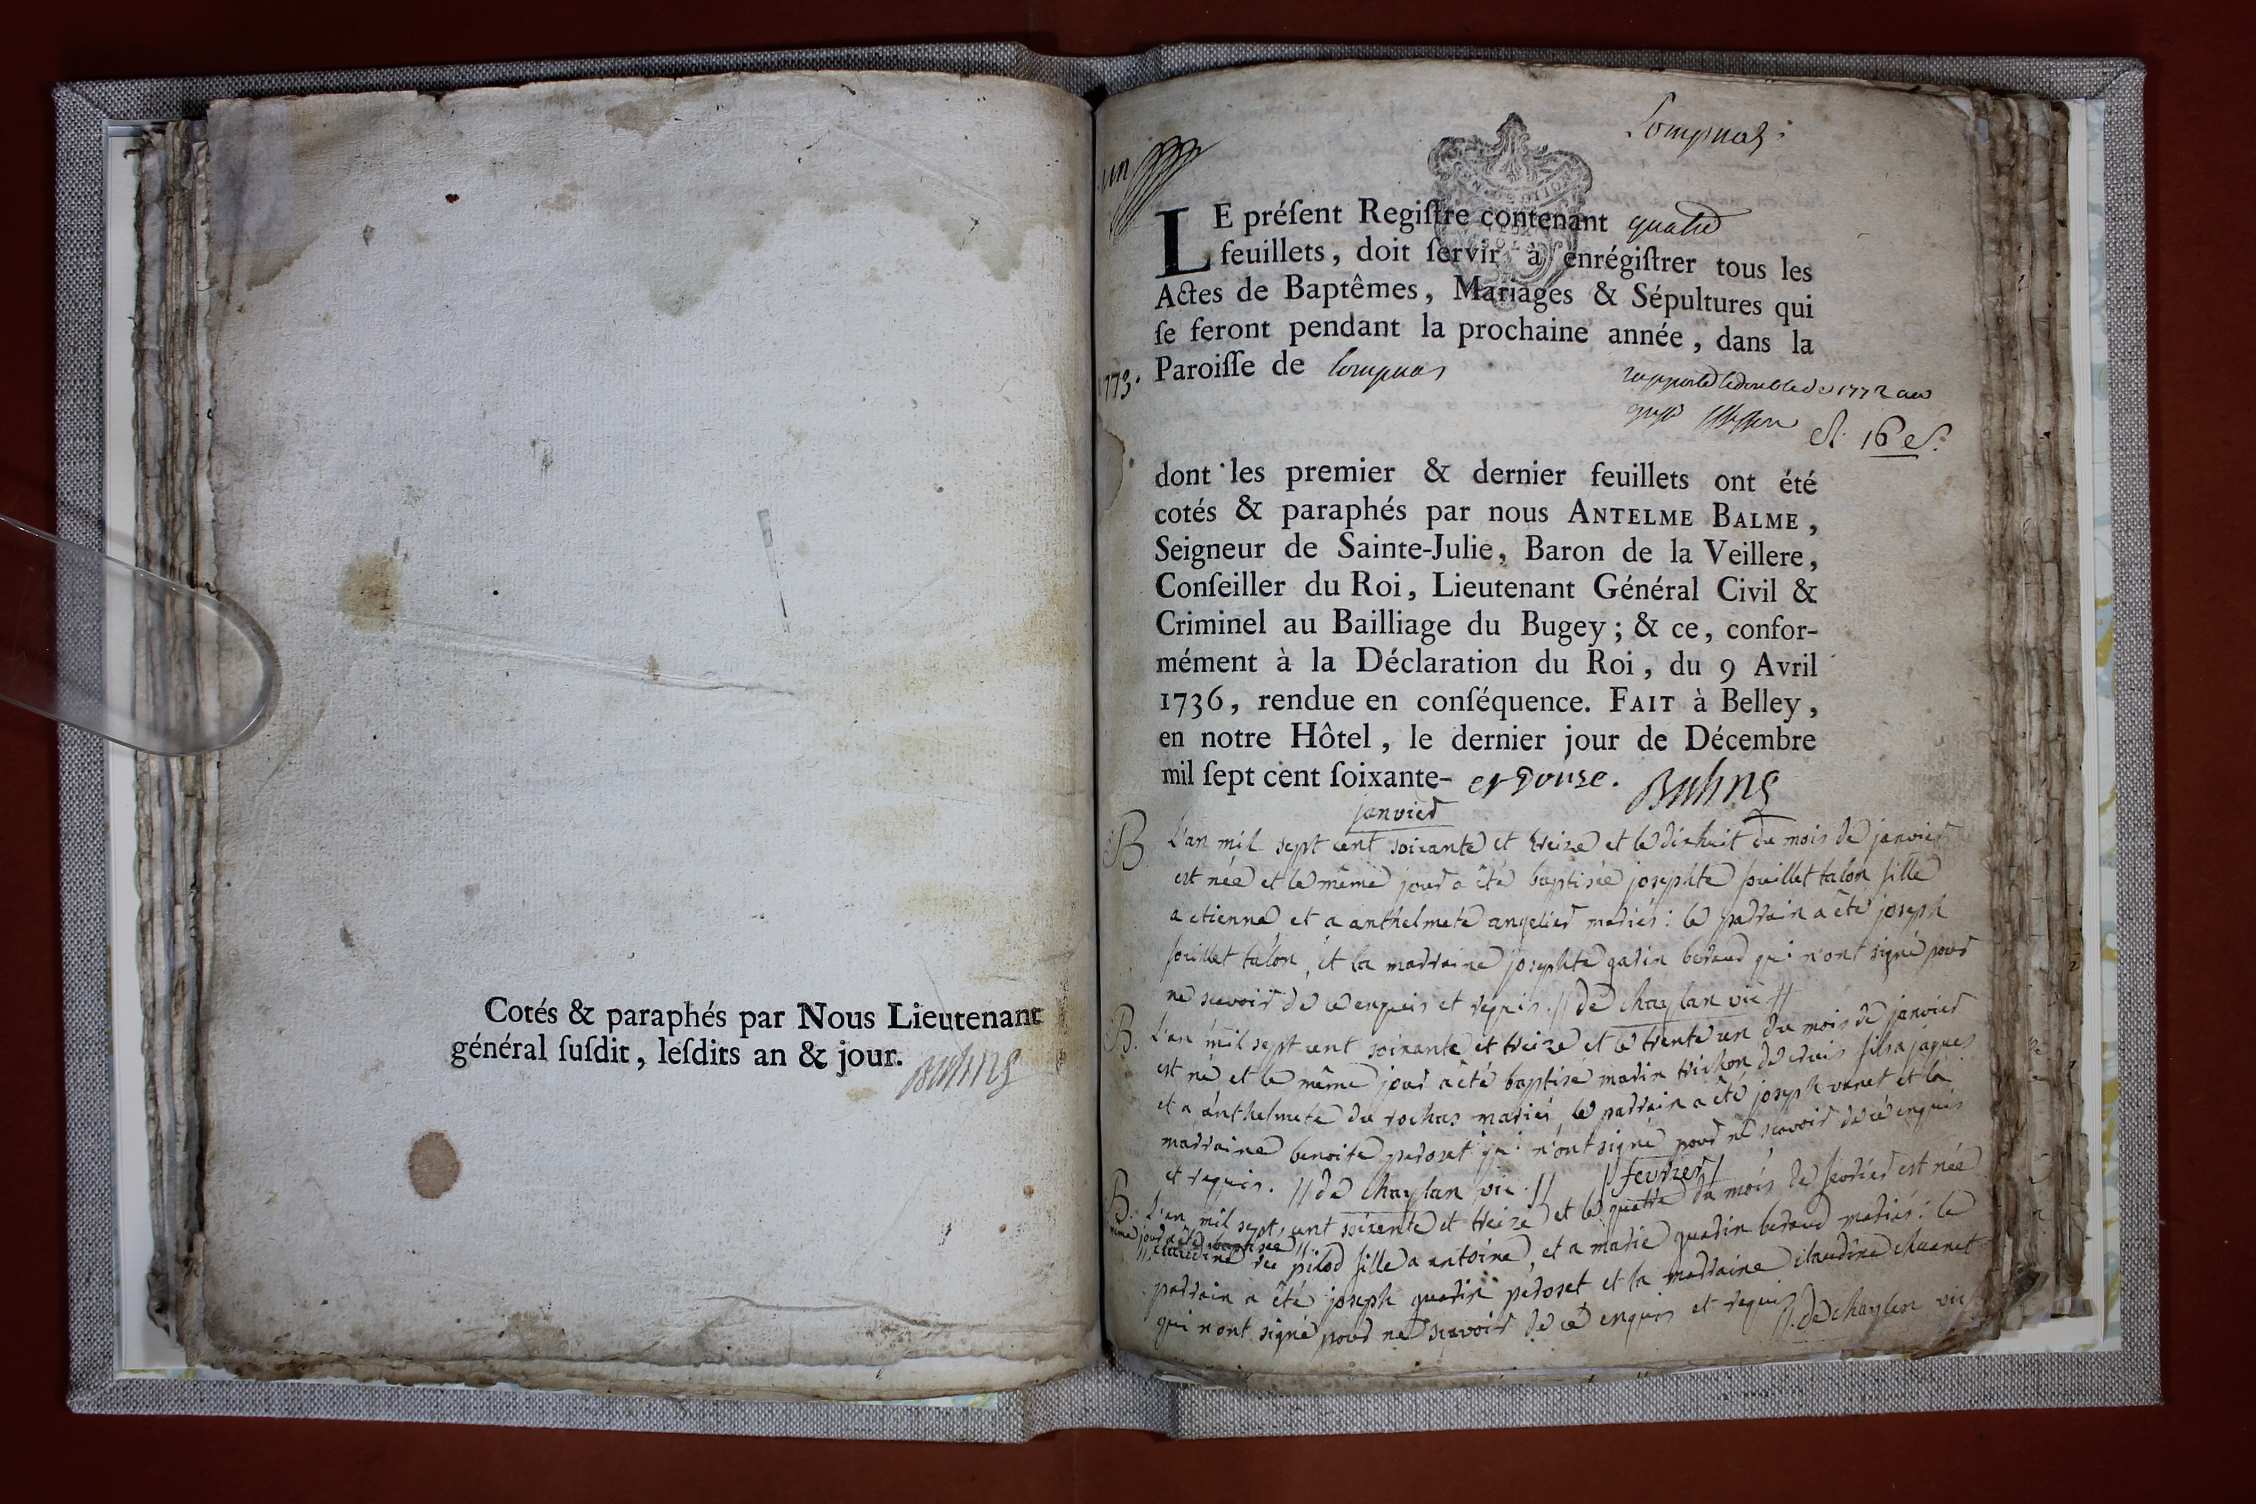 Cotés & paraphés par Nous Lieutenant
général ſuſdit, leſdits an & jour.
Lompnas
un
LE préſent Regiſtre contenant quatre
feuillets, doit ſervir à enrégiſtrer tous les
Actes de Baptêmes, Mariages & Sépultures qui
ſe feront pendant la prochaine année, dans la
Paroiſſe de Lompnas
1773.
rapporté le double de 1772 au
16
dont les premier & dernier feuillets ont été
cotés & paraphés par nous ANTELME BALME,
Seigneur de Sainte-Julie, Baron de la Veillere,
Conſeiller du Roi, Lieutenant Général Civil &
Criminel au Bailliage du Bugey; & ce, confor-
mément à la Déclaration du Roi, du 9 Avril
1736, rendue en conſéquence. FAIT à Belley,
en notre Hôtel, le dernier jour de Décembre
mil ſept cent ſoixante- et douze. Balme
janvier
B L'an mil sept cent soixante et treize et le dixhuit du mois de janvier
est née et le même jour a été baptisée josephte souillet talon fille
a etienne, et a anthelmete angelier mariés: le parrain a été joseph
souillet talon, et la marraine josephte garin beraud qui n'ont signé pour
ne scavoir de ce enquis et requis. // de chaylan vic //
B. L'an mil sept cent soixante et treize et le trente un du mois de janvier
est né et le même jour a été baptisé marin trichon fils a jaques
et a anthelmete du rochas mariés, le parrain a été joseph vanet et la
marraine benoite peroset qui n'ont signé pour ne scavoir de ce enquis
et requis. // de chaylan vic. //
// fevrier /
B. L'an mil sept cent soixante et treize et le quatre du mois de fevrier est née
même jour a été baptisée //
// claudine pilod fille a antoine, et a marie guarin beraud mariés: le
parrain a été joseph guarin peroset et la marraine claudine chuanet
qui n'ont signé pour ne scavoir de ce enquis et requis //. de chaylan vic